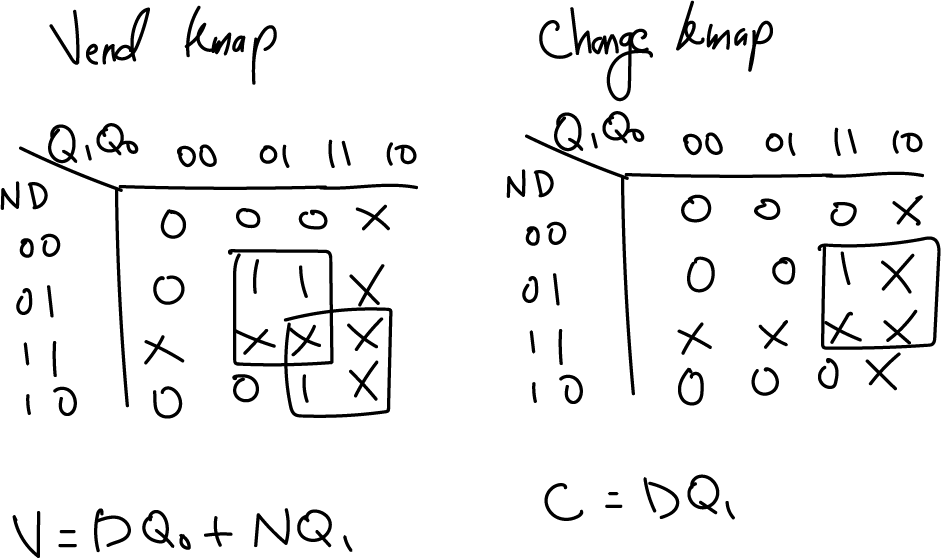 Vend kmap
Q₁Q₀ 00 01 11 10
ND
00 0 0 0 X
01 0 1 1 X
11 X X X X
10 0 0 1 X
V = DQ₀ + NQ₁
Change kmap
Q₁Q₀ 00 01 11 10
ND
00 0 0 0 X
01 0 0 1 X
11 X X X X
10 0 0 0 X
C = DQ₁